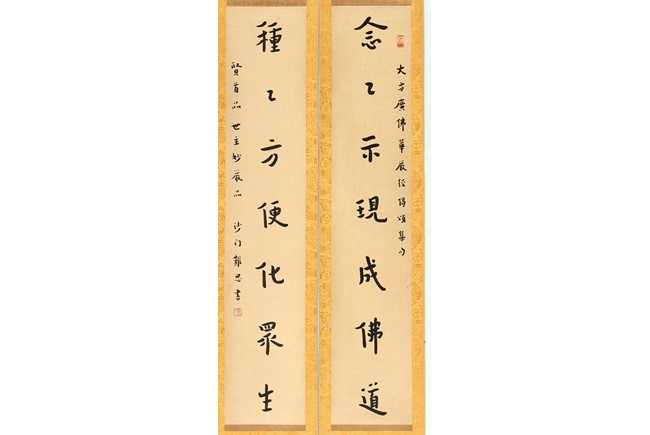 念〻示現成佛道
大方廣佛華嚴經偈頌集句
種〻方便化眾生
賢首品 世主妙嚴品 沙門難思書